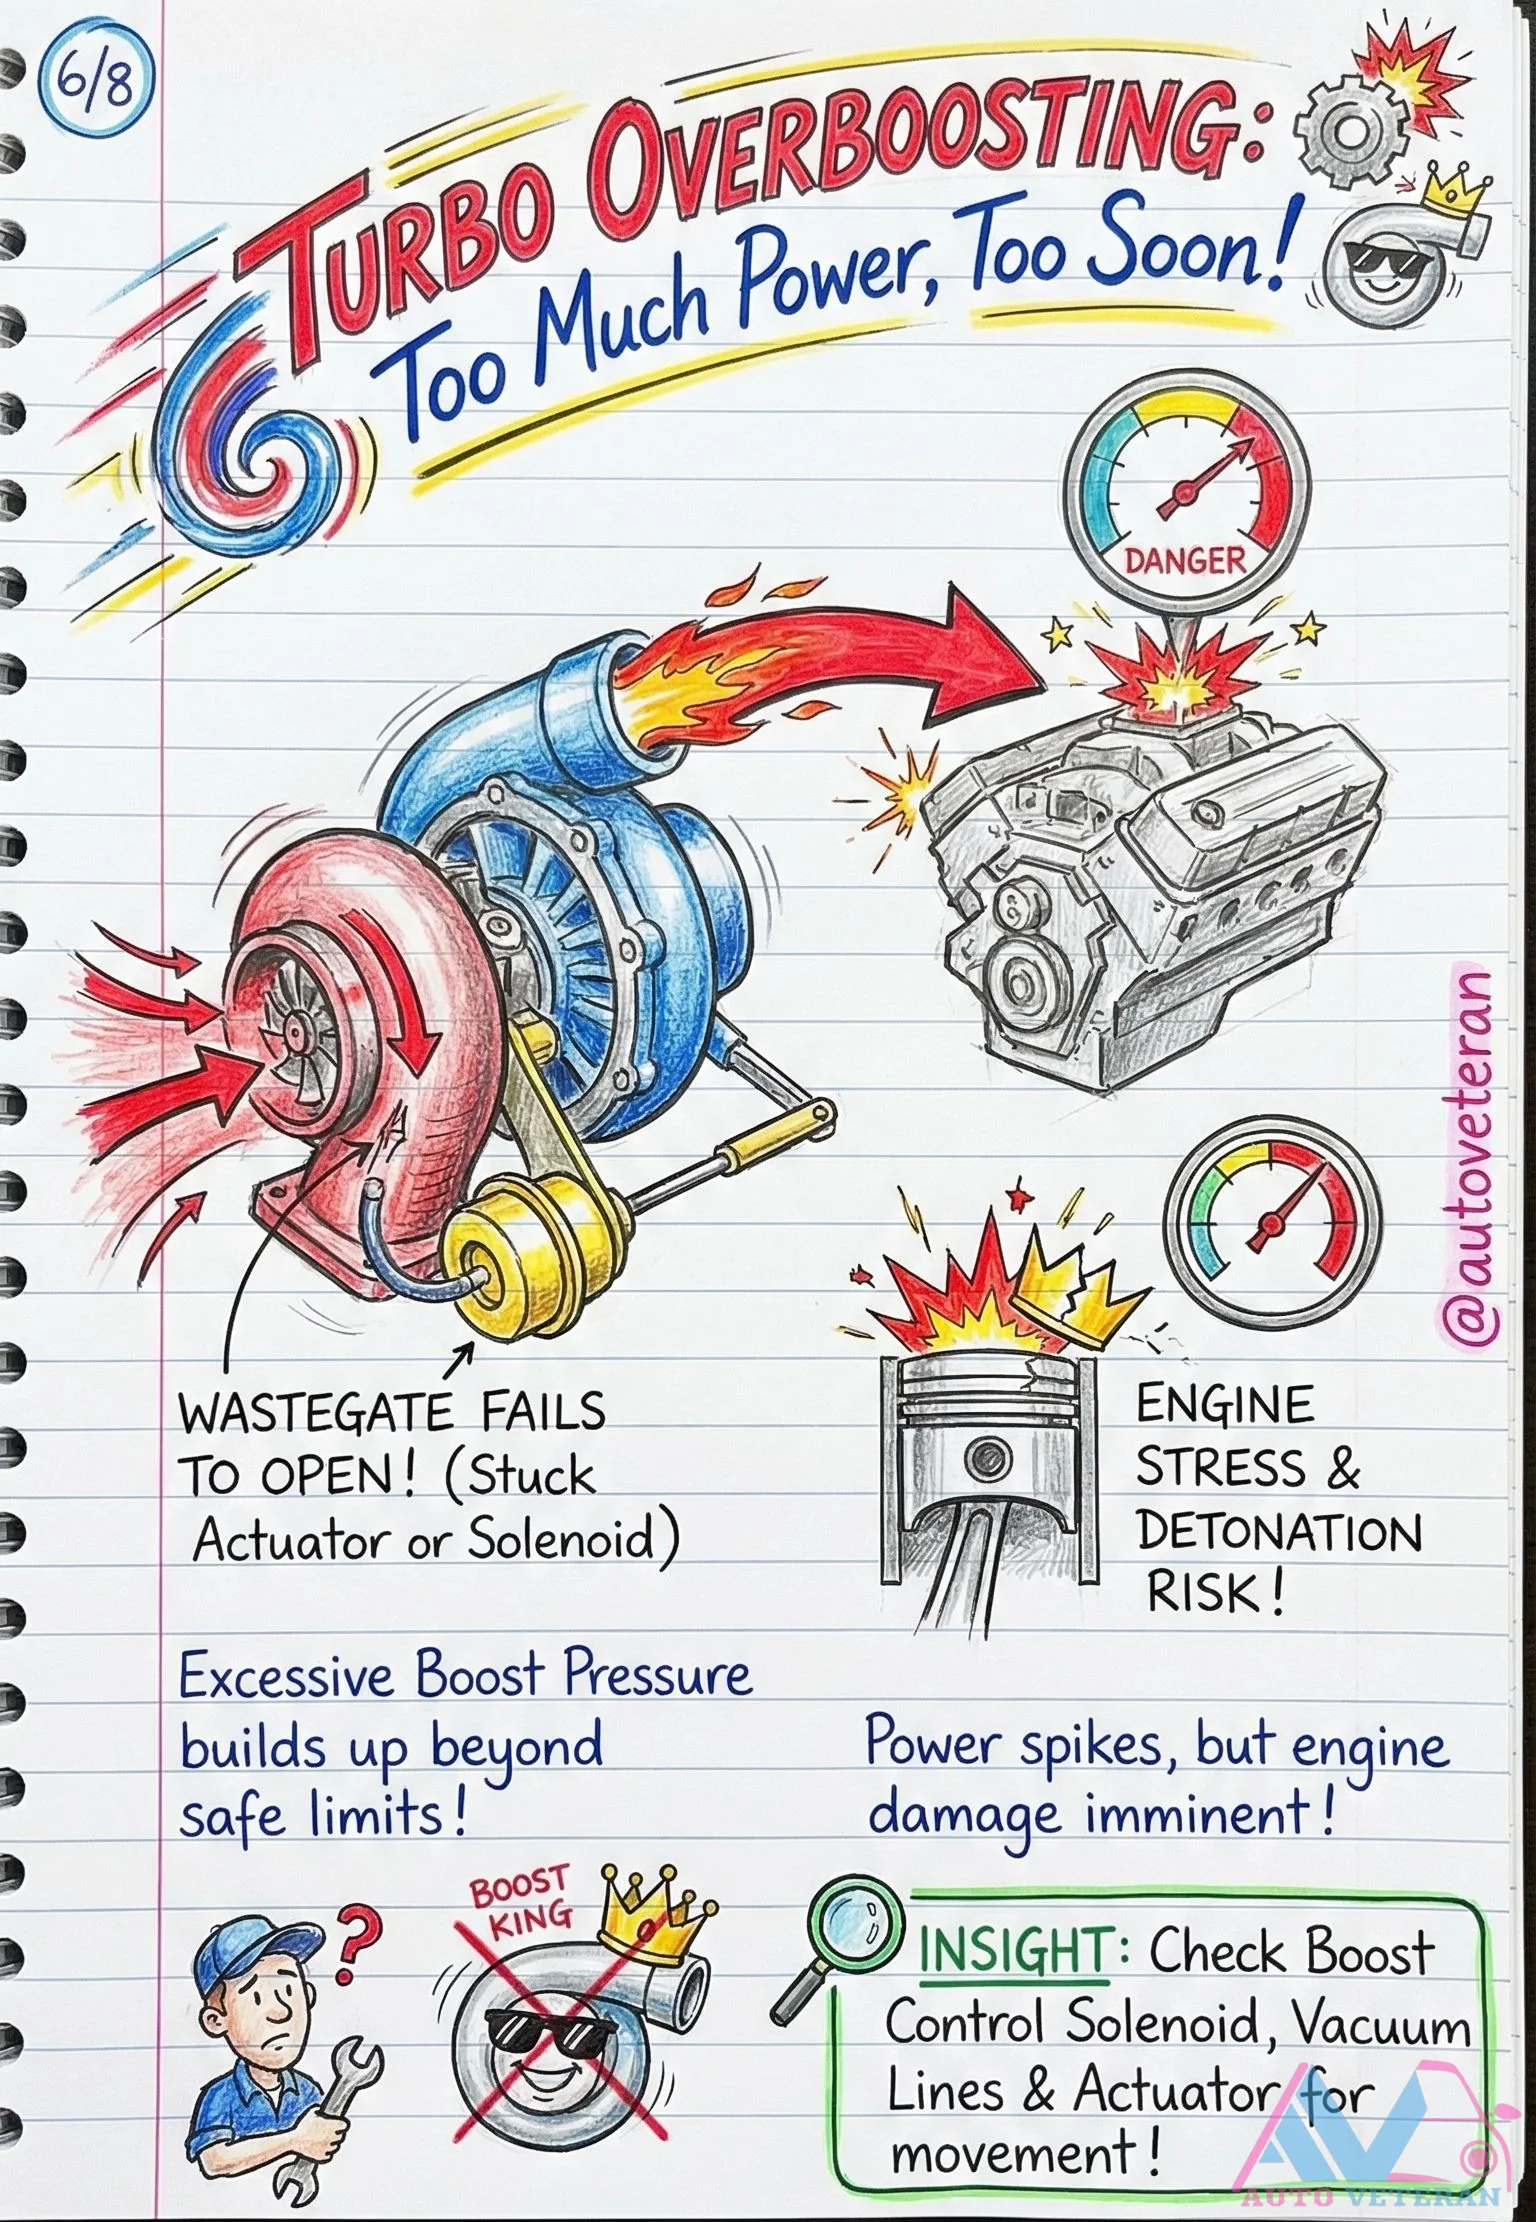 6/8
TURBO OVERBOOSTING:
Too Much Power, Too Soon!
DANGER
WASTEGATE FAILS
TO OPEN! (Stuck
Actuator or Solenoid)
ENGINE
STRESS &
DETONATION
RISK!
@autoveteran
Excessive Boost Pressure
builds up beyond
safe limits!
Power spikes, but engine
damage imminent!
?
BOOST
KING
INSIGHT: Check Boost
Control Solenoid, Vacuum
Lines & Actuator for
movement!
AV
AUTO VETERAN